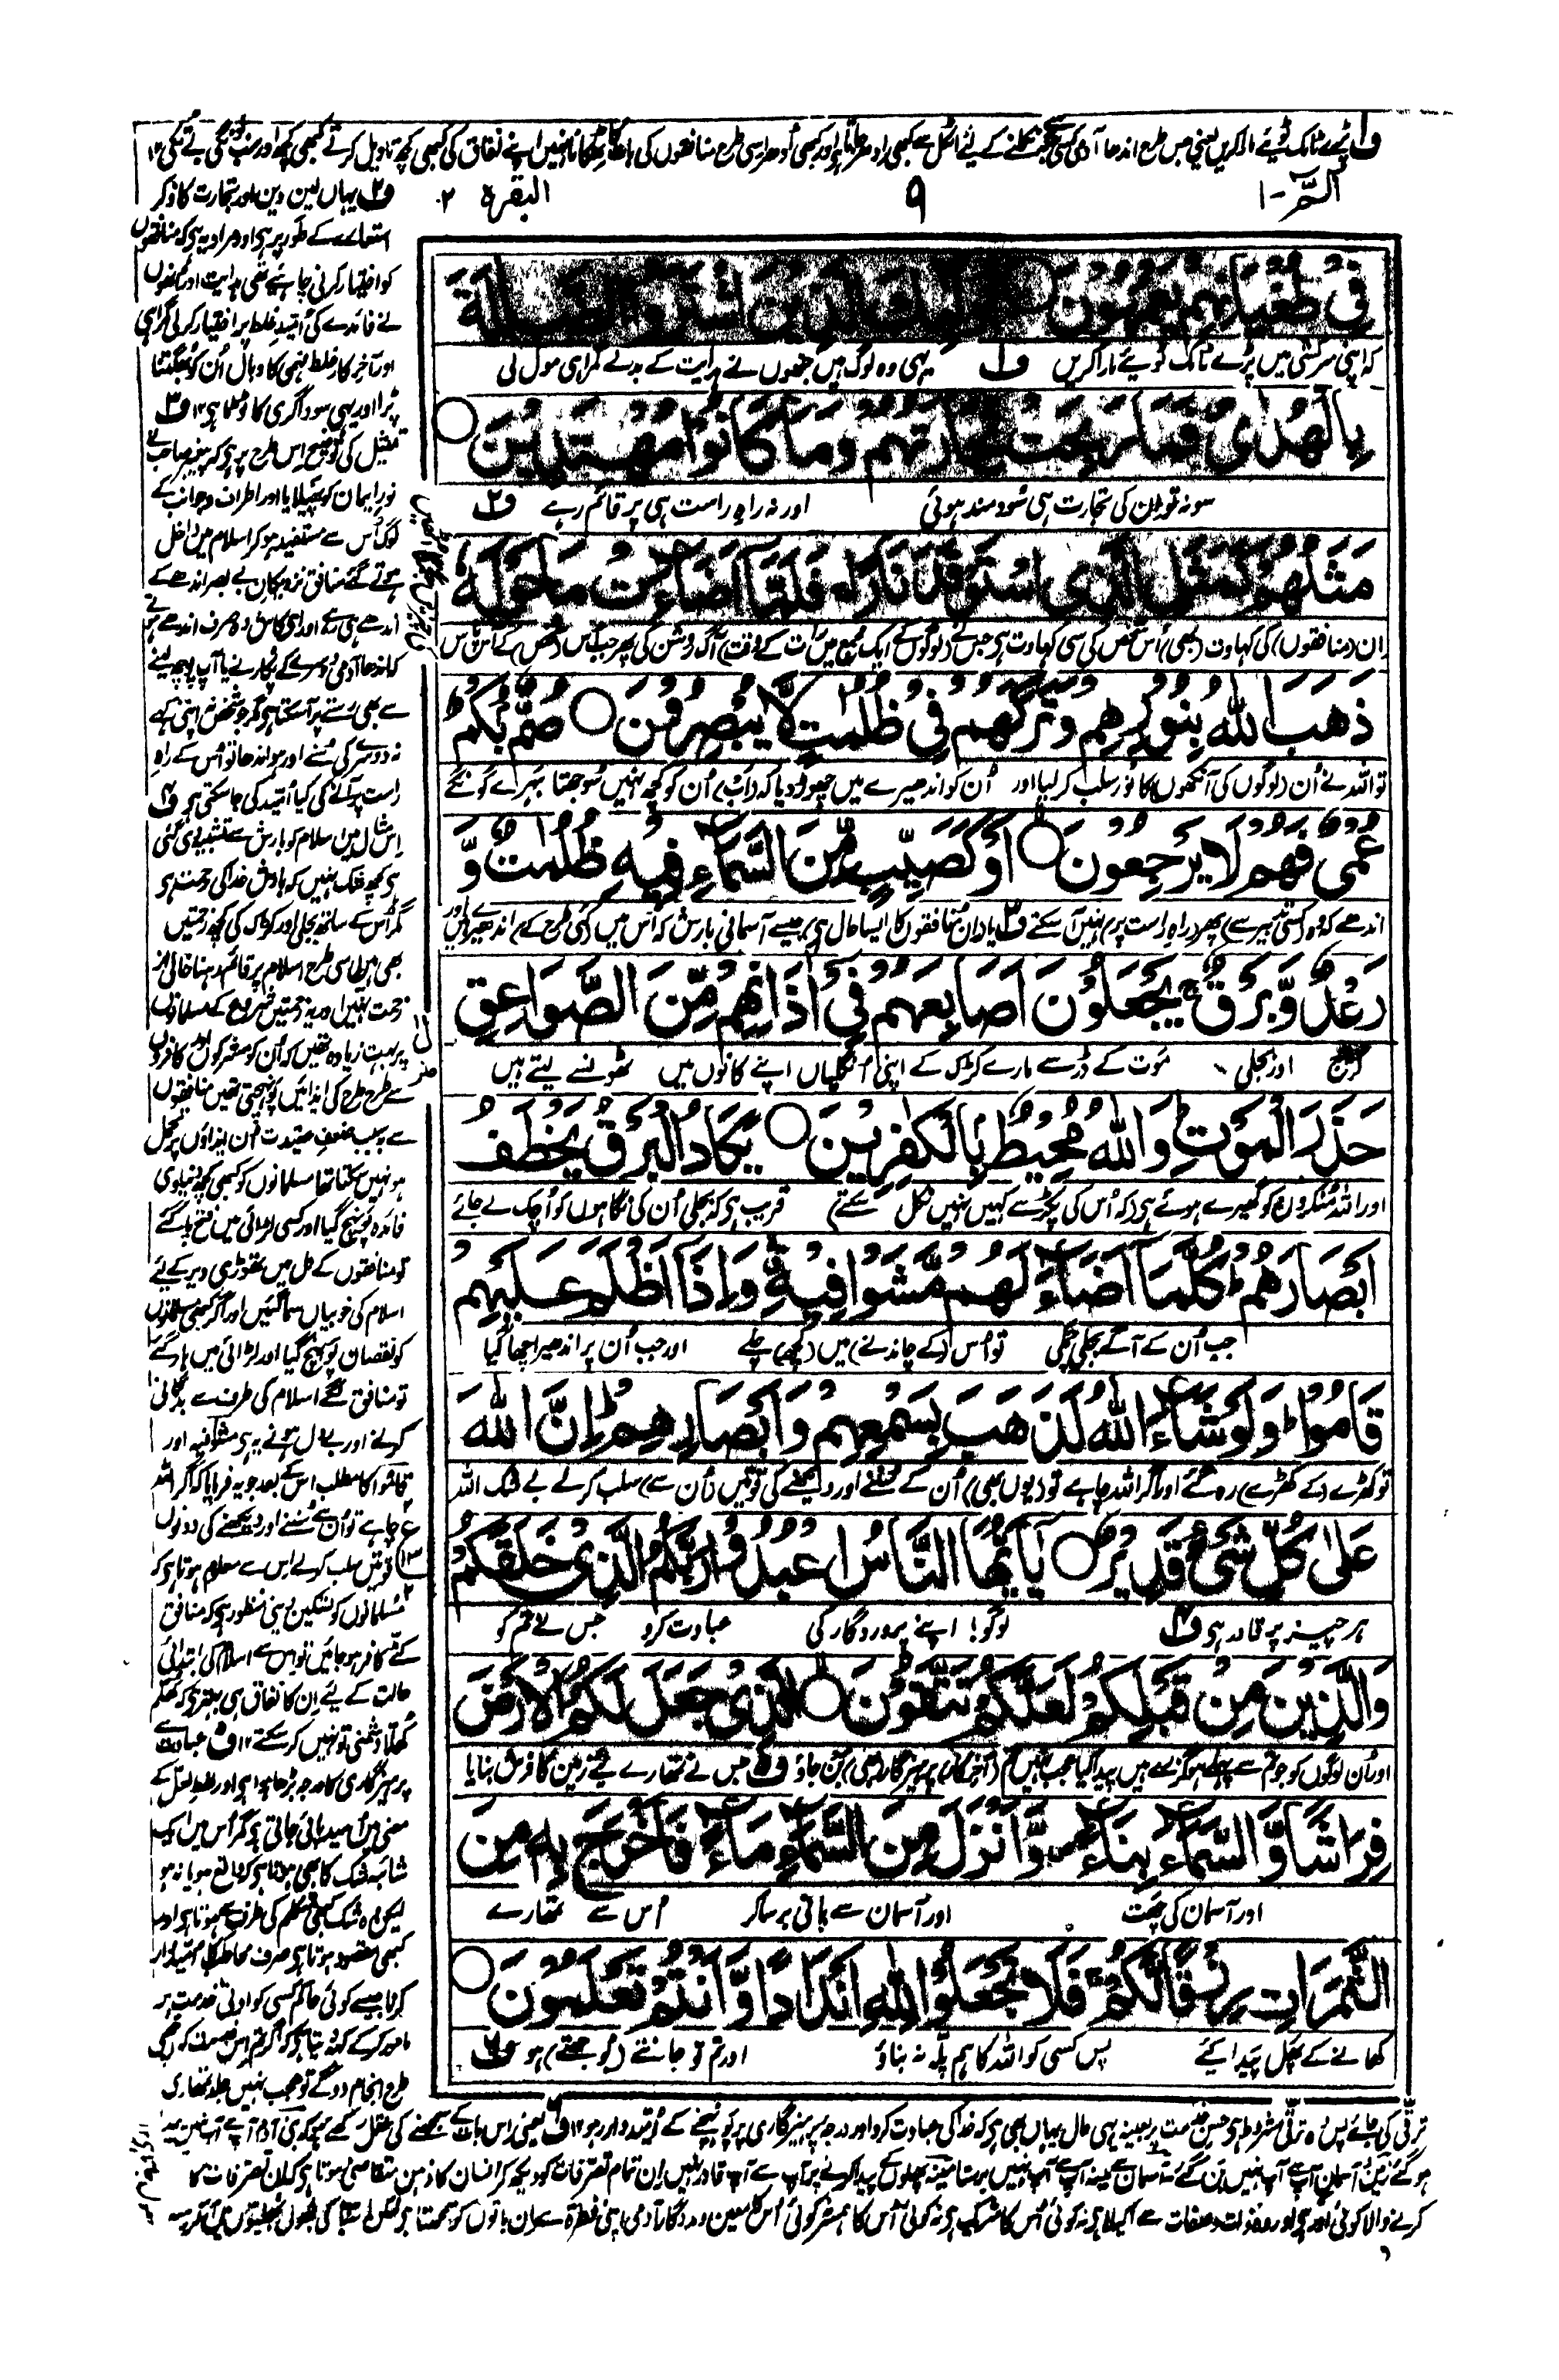 ف۱ پڑے ٹامک ٹوئیے مارا کریں یعنی جس طرح اندھا آدمی کے لئے اٹکل سے کبھی ادھر جاتا ہی اور کبھی اُدھر اسی طرح منافقوں کی اپنے نفاق کی کبھی کچھ تاویل کرتے کبھی کچھ اور سب بے تکی ۱۲
الٓمّٓ-۱
۹
البقرة ۲
فِیْ طُغْیَانِهِمْ یَعْمَهُوْنَ اُولٰٓئِكَ الَّذِیْنَ اشْتَرَوُا الضَّلٰلَةَ
کہ اپنی سرکشی میں پڑے ٹامک ٹوئیے مارا کریں ف۱ یہی وہ لوگ ہیں جنھوں نے ہدایت کے بدلے گمراہی مول لی
بِالْهُدٰی فَمَا رَبِحَتْ تِّجَارَتُهُمْ وَمَا كَانُوْا مُهْتَدِیْنَ
سو نہ تو ان کی تجارت ہی سودمند ہوئی اور نہ راہِ راست ہی پر قائم رہے ف۲
مَثَلُهُمْ كَمَثَلِ الَّذِی اسْتَوْقَدَ نَارًا فَلَمَّآ اَضَآءَتْ مَا حَوْلَهٗ
ان (منافقوں) کی کہاوت (بھی) اُس شخص کی سی کہاوت ہی جس نے (لوگوں کے ایک مجمع میں رات کے وقت) آگ روشن کی پھر جب اس (شخص) کے آس پاس
ذَهَبَ اللّٰهُ بِنُوْرِهِمْ وَتَرَكَهُمْ فِیْ ظُلُمٰتٍ لَّا یُبْصِرُوْنَ صُمٌّ بُكْمٌ
تو اللہ نے اُن (لوگوں کی آنکھوں) کا نور سلب کر لیا اور اُن کو اندھیرے میں چھوڑ دیا کہ (اب) اُن کو کچھ نہیں سوجھتا بہرے گونگے
عُمْیٌ فَهُمْ لَا یَرْجِعُوْنَ اَوْ كَصَیِّبٍ مِّنَ السَّمَآءِ فِیْهِ ظُلُمٰتٌ وَّ
اندھے کہ وہ (کسی طرح سے) پھر (راہِ راست پر) نہیں آسکتے ف۳ یا (ان منافقوں کا ایسا حال ہی) جیسے آسمانی بارش کہ اُس میں (کئی طرح کے) اندھیرے ہیں اور
رَعْدٌ وَّبَرْقٌ یَجْعَلُوْنَ اَصَابِعَهُمْ فِیْٓ اٰذَانِهِمْ مِّنَ الصَّوَاعِقِ
گرج اور بجلی موت کے ڈر سے مارے کڑک کے اپنی انگلیاں اپنے کانوں میں ٹھونسے لیتے ہیں
حَذَرَ الْمَوْتِ وَاللّٰهُ مُحِیْطٌۢ بِالْكٰفِرِیْنَ یَكَادُ الْبَرْقُ یَخْطَفُ
اور اللہ منکروں کو گھیرے ہوئے ہی (کہ اُس کی پکڑ سے کہیں نہیں نکل سکتے) قریب ہی کہ بجلی اُن کی نگاہوں کو اُچک لے جائے
اَبْصَارَهُمْ كُلَّمَآ اَضَآءَ لَهُمْ مَّشَوْا فِیْهِ وَاِذَآ اَظْلَمَ عَلَیْهِمْ
جب اُن کے آگے بجلی چمکی تو اُس (کے چاندنے) میں (کچھ) چلے اور جب اُن پر اندھیرا چھا گیا
قَامُوْا وَلَوْ شَآءَ اللّٰهُ لَذَهَبَ بِسَمْعِهِمْ وَاَبْصَارِهِمْ اِنَّ اللّٰهَ
تو کھڑے (کے کھڑے) رہ گئے اور اگر اللہ چاہے تو (یوں بھی) اُن کے سننے اور دیکھنے کی قوتیں (اُن سے) سلب کر لے بے شک اللہ
عَلٰی كُلِّ شَیْءٍ قَدِیْرٌ یٰٓاَیُّهَا النَّاسُ اعْبُدُوْا رَبَّكُمُ الَّذِیْ خَلَقَكُمْ
ہر چیز پر قادر ہی ف۴ لوگو! اپنے پروردگار کی عبادت کرو جس نے تم کو
وَالَّذِیْنَ مِنْ قَبْلِكُمْ لَعَلَّكُمْ تَتَّقُوْنَ الَّذِیْ جَعَلَ لَكُمُ الْاَرْضَ
اور اُن لوگوں کو جو تم سے پہلے ہو گزرے ہیں پیدا کیا عجب نہیں تم (آخرکار) پرہیزگار (بھی) بن جاؤ ف۵ جس نے تمھارے لیے زمین کا فرش بنایا
فِرَاشًا وَّالسَّمَآءَ بِنَآءً وَّاَنْزَلَ مِنَ السَّمَآءِ مَآءً فَاَخْرَجَ بِهٖ مِنَ
اور آسمان کی چھت اور آسمان سے پانی برسا کر اُس سے تمھارے
الثَّمَرَاتِ رِزْقًا لَّكُمْ فَلَا تَجْعَلُوْا لِلّٰهِ اَنْدَادًا وَّاَنْتُمْ تَعْلَمُوْنَ
کھانے کے پھل پیدا کیے پس کسی کو اللہ کا ہم پلہ نہ بناؤ اور تم تو جانتے (بوجھتے) ہو ف۶
ف۲ یہاں لین دین اور تجارت کا ذکر
استعارے کے طور پر ہی اور مراد یہ ہی کہ منافقوں
کو اختیار کرنی چاہئے تھی ہدایت اور انھوں
نے فائدے کی اُمید غلط پر اختیار کر لی گمراہی
اور آخرکار غلط فہمی کا وبال اُن کو بھگتنا
پڑا اور یہی سوداگری کا ٹوٹا ہی ۱۲ ف۳
تمثیل کی توضیح اس طرح پر ہی کہ پیغمبر صاحب نے
نورِ ایمان کو پھیلایا اور اطراف و جوانب کے
لوگ اُس سے مستفید ہو کر اسلام میں داخل
ہوتے گئے
سے بھی رستے پر آسکتا ہی مگر جو شخص نہ اپنی کہے
نہ دوسرے کی سُنے اور ہو اندھا تو اُس کے راہِ
راست پر آنے کی کیا اُمید کی جا سکتی ہی ف۴
اس مثال میں اسلام کو بارش سے تشبیہ دی گئی
ہی کچھ شک نہیں کہ بارش خدا کی رحمت ہی
مگر اُس کے ساتھ بجلی اور کڑک کی کچھ زحمتیں
بھی ہیں اسی طرح اسلام پر قائم رہنا خالی از
زحمت نہیں اور یہ زحمتیں شروع کے مسلمانوں
پر بہت زیادہ تھیں کہ اُن کو مشرکوں اور کافروں
سے طرح طرح کی ایذائیں پونہچتی تھیں منافقوں
سے بہ سبب ضعفِ عقیدت اُن ایذاؤں پر تحمل
ہو نہیں سکتا تھا مسلمانوں کو کبھی کچھ دنیاوی
فائدہ پونہچ گیا اور کسی لڑائی میں فتح پا گئے
تو منافقوں کے دل میں تھوڑی دیر کے لئے
اسلام کی خوبیاں سما گئیں اور اگر کبھی مسلمانوں
کو نقصان پونہچ گیا اور لڑائی میں ہار گئے
تو منافق لگے اسلام کی طرف سے بدگمانی
کرنے اور بے دل ہونے یہ ہی مشوا فیہ اور
قاموا کا مطلب اس کے بعد جو یہ فرمایا کہ اگر اللہ
چاہے تو اُن کے سُننے اور دیکھنے کی دونوں
قوتیں سلب کر لے اس سے معلوم ہوتا ہی کہ
مسلمانوں کو تسکین دینی منظور ہی کہ منافق
پکے کافر ہو جائیں تو اس سے اسلام کی ابتدائی
حالت کے لیے ان کا نفاق ہی بہتر ہی کہ کھلم
کھلا دشمنی تو نہیں کر سکتے ۱۲ ف۵ عبادت سے
پرہیزگاری کا درجہ بڑھا ہوا ہی اور لفظ لعل کے
معنی میں اُمید پائی جاتی ہی مگر اُس میں ایک
شائبہ شک کا بھی ہوتا ہی کہ واقع ہو یا نہ ہو
لیکن وہ شک کبھی متکلم کی طرف سے ہوتا ہی اور
کرنا جیسے کوئی حاکم کسی کو ادنیٰ خدمت پر
مامور کر کے کہہ دیتا ہی کہ اگر تم اس خدمت کو اچھی
طرح انجام دو گے تو عجب نہیں جلد تمھاری
ترقی کی جائے پس وہ ترقی مشروط ہی حسنِ خدمت پر بعینہ یہی حال یہاں بھی ہی کہ خدا کی عبادت کرو اور درجہ پرہیزگاری پر پونہچنے کے اُمیدوار رہو ۱۲ ف۶ یعنی اس بات کے سمجھنے کی عقل رکھتے ہو کہ
ہو گئے زمین و آسمان آپ سے آپ نہیں بن گئے آسمان سے مینہ آپ سے آپ نہیں برستا مینہ پھلوں کے پیدا کرنے پر آپ سے آپ قادر نہیں ان تمام تصرفات کو دیکھ کر انسان کا ذہن متقاضی ہوتا ہی کہ ان تصرفات کا
کرنے والا کوئی اور ہی اور وہ ذات و صفات سے اکیلا ہی نہ کوئی اُس کا شریک ہی نہ کوئی اُس کا ہمسر نہ کوئی اُس کا معین و مددگار آدمی اپنی فطرت سے ان باتوں کو سمجھتا ہی لیکن